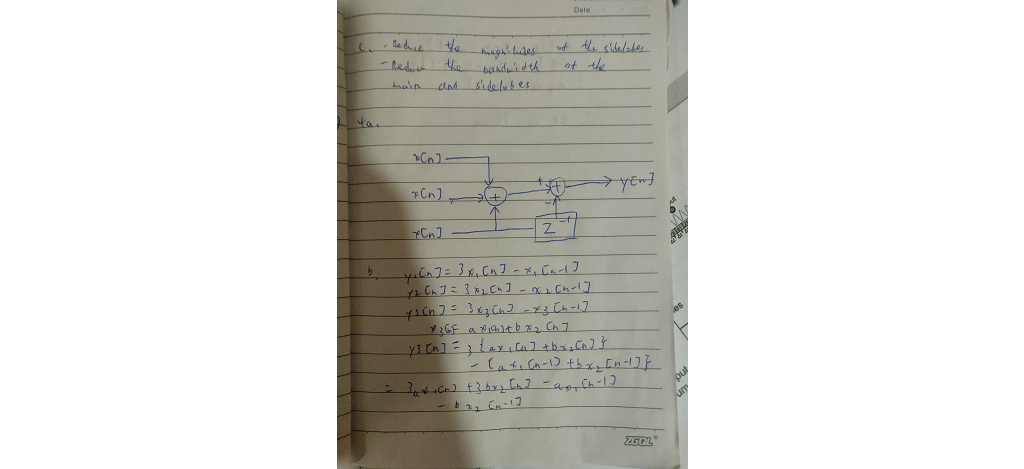 Date
c. - Reduce the magnitudes of the sidelobes
- Reduce the bandwidth of the
main and sidelobes
4a.
x[n]
x[n] + + + y[n]
-
x[n] Z⁻¹
b. y₁[n] = 3x₁[n] - x₁[n-1]
y2[n] = 3x2[n] - x2[n-1]
y3[n] = 3x3[n] - x3[n-1]
x3[n] = ax₁[n] + bx2[n]
y3[n] = 3{ax₁[n] + bx2[n]}
- {ax₁[n-1) + bx2[n-1]}
= 3ax₁[n] + 3bx2[n] - ax₁[n-1]
- bx2[n-1]